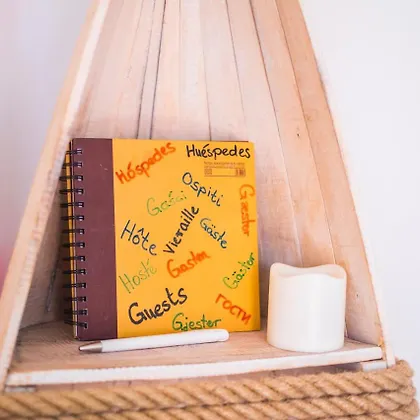 Huéspedes
Hóspedes
Ospiti
Gæster
Gości
Hôte
Vieraille
Gäste
Gasten
Hosté
Gäster
Guests
гости
Gjester